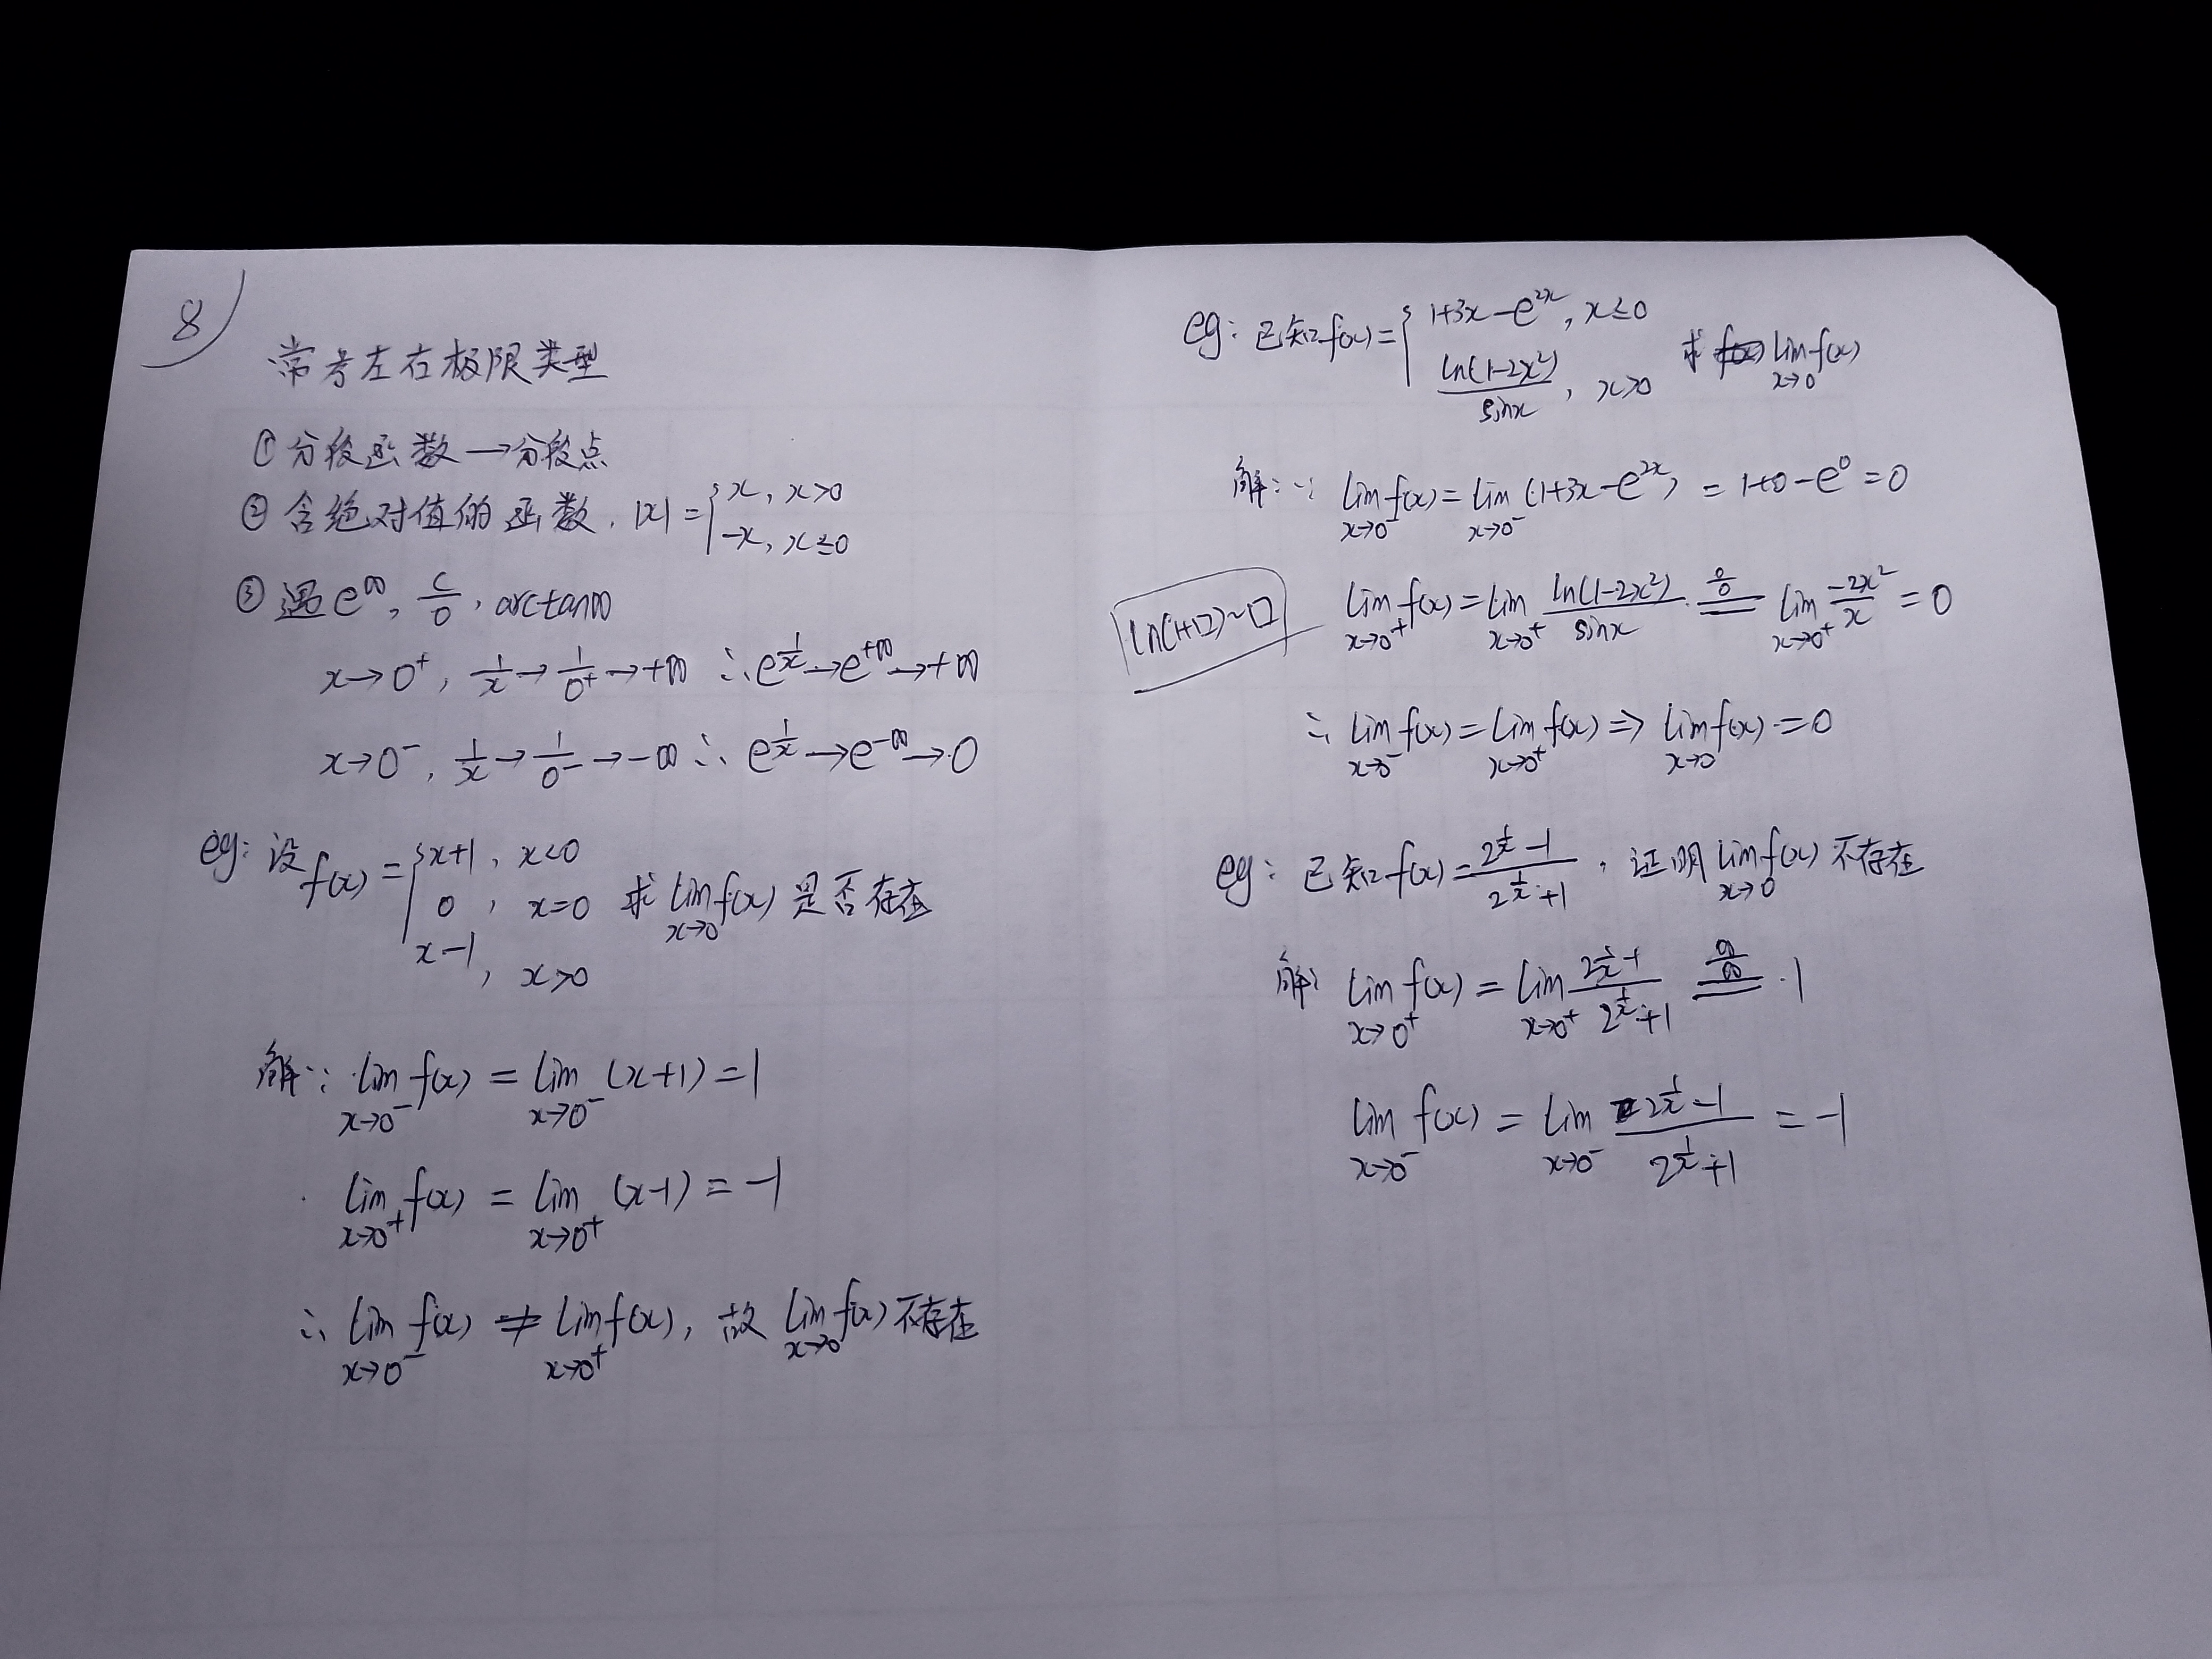 8
常考左右极限类型
① 分段函数→分段点
② 含绝对值的函数. |x| = { x, x>0
-x, x≤0
③ 遇 e^∞, c/0, arctan∞
x→0⁺, 1/x → 1/0⁺ → +∞ ∴ e^(1/x) → e^(+∞) → +∞
x→0⁻, 1/x → 1/0⁻ → -∞ ∴ e^(1/x) → e^(-∞) → 0
eg: 设 f(x) = { x+1, x<0
0, x=0 求 lim(x→0) f(x) 是否存在
x-1, x>0
解: ∵ lim(x→0⁻) f(x) = lim(x→0⁻) (x+1) = 1
lim(x→0⁺) f(x) = lim(x→0⁺) (x-1) = -1
∴ lim(x→0⁻) f(x) ≠ lim(x→0⁺) f(x), 故 lim(x→0) f(x) 不存在
eg: 已知 f(x) = { 1+3x-e^(2x), x≤0
ln(1-2x²)/sinx, x>0 求 lim(x→0) f(x)
解: ∵ lim(x→0⁻) f(x) = lim(x→0⁻) (1+3x-e^(2x)) = 1+0-e^0 = 0
ln(1+□)~□
lim(x→0⁺) f(x) = lim(x→0⁺) ln(1-2x²)/sinx =(0/0)= lim(x→0⁺) -2x²/x = 0
∴ lim(x→0⁻) f(x) = lim(x→0⁺) f(x) ⇒ lim(x→0) f(x) = 0
eg: 已知 f(x) = (2^(1/x)-1)/(2^(1/x)+1), 证明 lim(x→0) f(x) 不存在
解: lim(x→0⁺) f(x) = lim(x→0⁺) (2^(1/x)-1)/(2^(1/x)+1) =(∞/∞)= 1
lim(x→0⁻) f(x) = lim(x→0⁻) (2^(1/x)-1)/(2^(1/x)+1) = -1